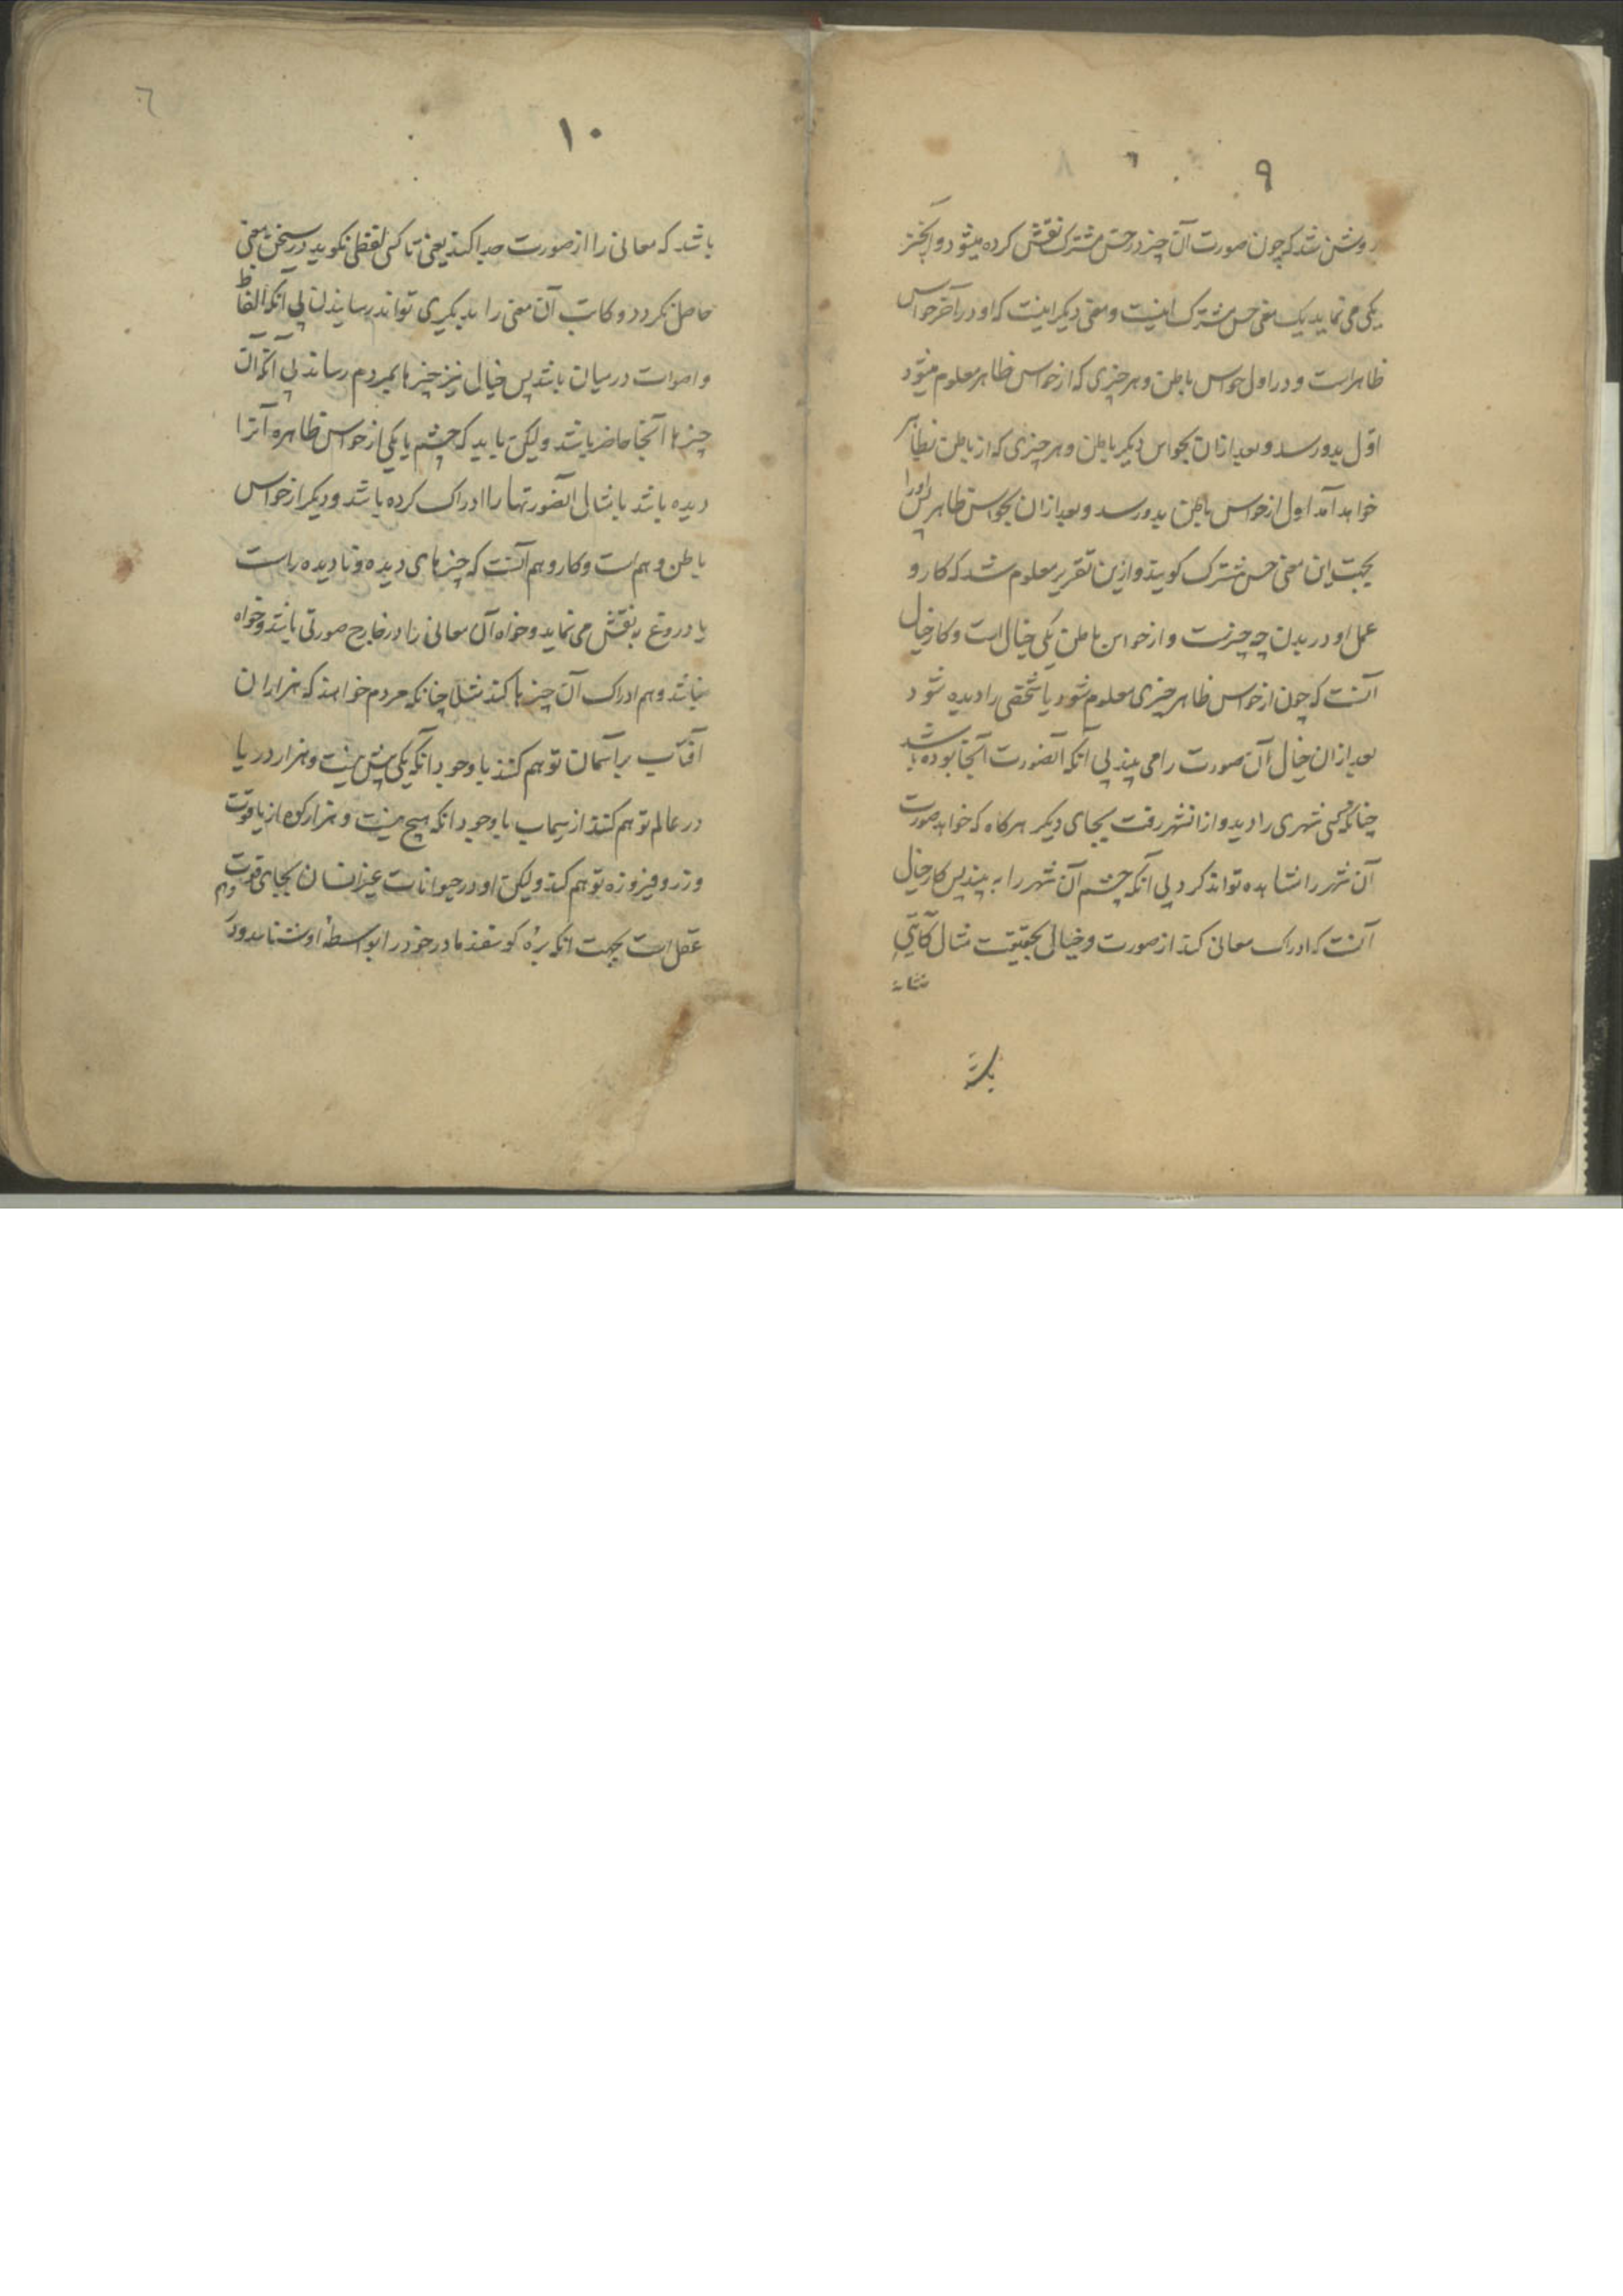 ۹
روشن شد که چون صورت آن چیز در حس مشترک نقش کرده میشود و آنچیز
یکی می نماید یک معنی حس مشترک اینست و معنی دیگر اینست که او در آخر حواس
ظاهر است و در اول حواس باطن و هر چیزی که از حواس ظاهر معلوم میشود
اول بدو رسد و بعد ازان بحواس دیگر باطن و هر چیزی که از باطن بظاهر
خواهد آمد اول از حواس باطن بدو رسد و بعد ازان بحواس ظاهر پس او را
بجهت این معنی حس مشترک کویند و ازین تقریر معلوم شد که کار و
عمل او در بدن چه چیزست و از حواس باطن یکی خیال است و کار خیال
آنست که چون از حواس ظاهر چیزی معلوم شود یا شخصی را دیده شود
بعد ازان خیال آن صورت را می بیند بی آنکه آنصورت آنجا بوده باشد
چنانکه کسی شهری را دید و از انشهر رفت بجای دیگر هرکاه که خواهد صورت
آن شهر را مشاهده تواند کرد بی آنکه چشم آن شهر را به بیند پس کار خیال
آنست که ادراک معانی کند از صورت و خیالی بحقیقت مثال کاتبی
۱۰
باشد که معانی را از صورت جدا کند یعنی تا کسی لفظی نکوید در سخن معنی
حاصل نکردد و کاتب آن معنی را بدیکری تواند رسانیدن بی آنکه الفاظ
و اصوات در میان باشد پس خیالی نیز چیزها بمردم رساند بی آنکه آن
چیزها آنجا حاضر باشد ولیکن باید که چشم یا یکی از حواس ظاهره آنرا
دیده باشد یا مثالی آنصورتها را ادراک کرده باشد و دیکر از حواس
باطن وهم است و کار وهم آنست که چیزهای دیده و نادیده راست
یا دروغ به نقش می نماید و خواه آن معانی را در خارج صورتی باشد و خواه
نباشد وهم ادراک آن چیزها کند مثلا چنانکه مردم خواهند که هزاران
آفتاب بر آسمان توهم کنند با وجود آنکه یکی بیش نیست و هزار دریا
در عالم توهم کنند از سیماب با وجود آنکه هیچ نیست و هزار کوه از یاقوت
و زر و فیروزه توهم کند ولیکن او در حیوانات غیر انسان بجای قوت
وهم
عقل است بجهت انکه بره کوسفند مادر خود را بواسطه او شناسد و